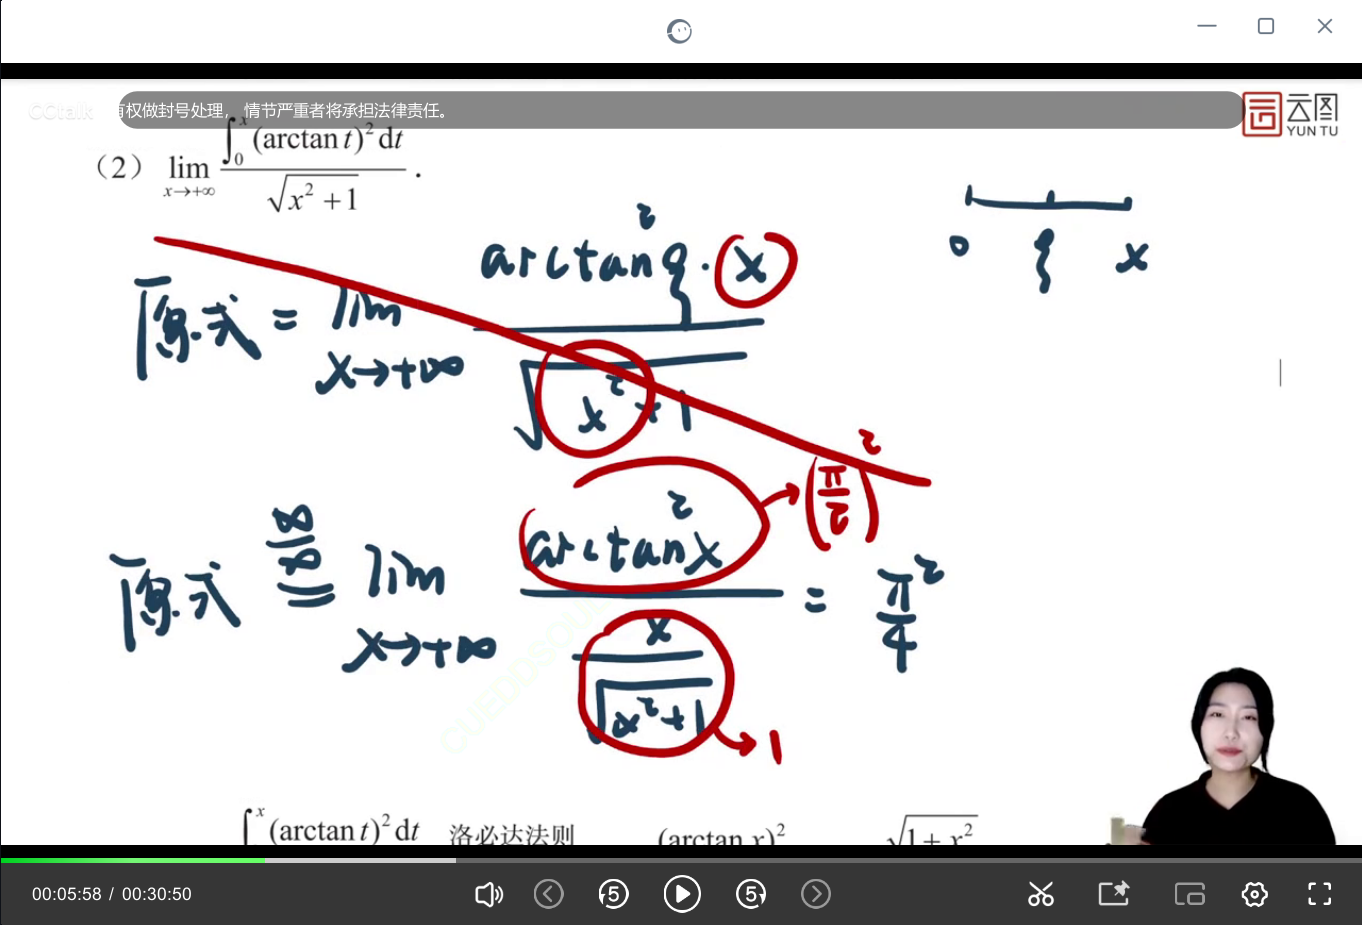 CCtalk 有权做封号处理，情节严重者将承担法律责任。
云图
YUN TU
（2） lim x→+∞ ∫₀ˣ (arctan t)² dt / √(x² + 1) .
0 ξ x
原式 = lim x→+∞ arctan²ξ · x / √(x² + 1)
原式 ∞/∞ = lim x→+∞ arctan²x / (x / √(x² + 1)) = π²/4
(π/2)²
1
∫ˣ (arctan t)² dt 洛必达法则 (arctan x)² √(1 + x²)
00:05:58 / 00:30:50
5
5